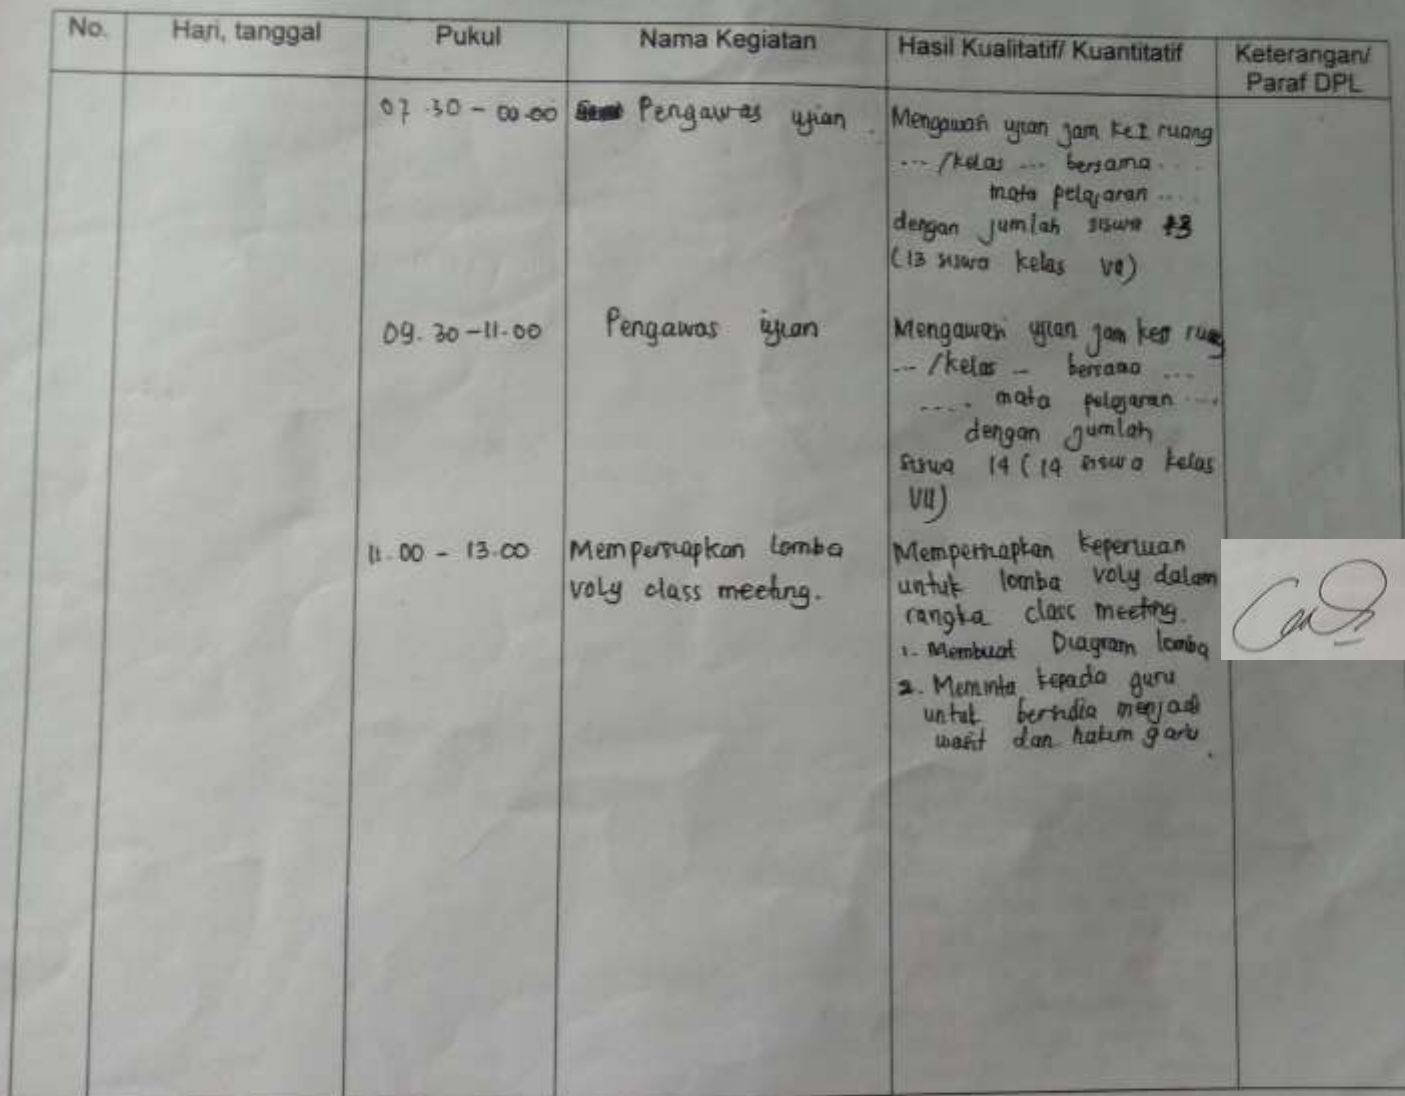 No. Hari, tanggal Pukul Nama Kegiatan Hasil Kualitatif/ Kuantitatif Keterangan/
Paraf DPL
07.30 - 09.00 Pengawas ujian. Mengawasi ujian jam ke I ruang
... /kelas ... bersama ...
mata pelajaran ....
dengan jumlah siswa 13
(13 siswa kelas
09.30 - 11.00 Pengawas ujian Mengawasi ujian jam ruang
... /kelas - bersama ...
.... mata pelajaran ....
dengan jumlah
siswa 14 (14 siswa kelas
VII)
11.00 - 13.00 Mempersiapkan lomba Mempersiapkan keperluan
voly class meeting. untuk lomba voly dalam
rangka class meeting.
1. Membuat Diagram lomba
2. Meminta kepada guru
untuk bersedia menjadi
wasit dan hakim garis.